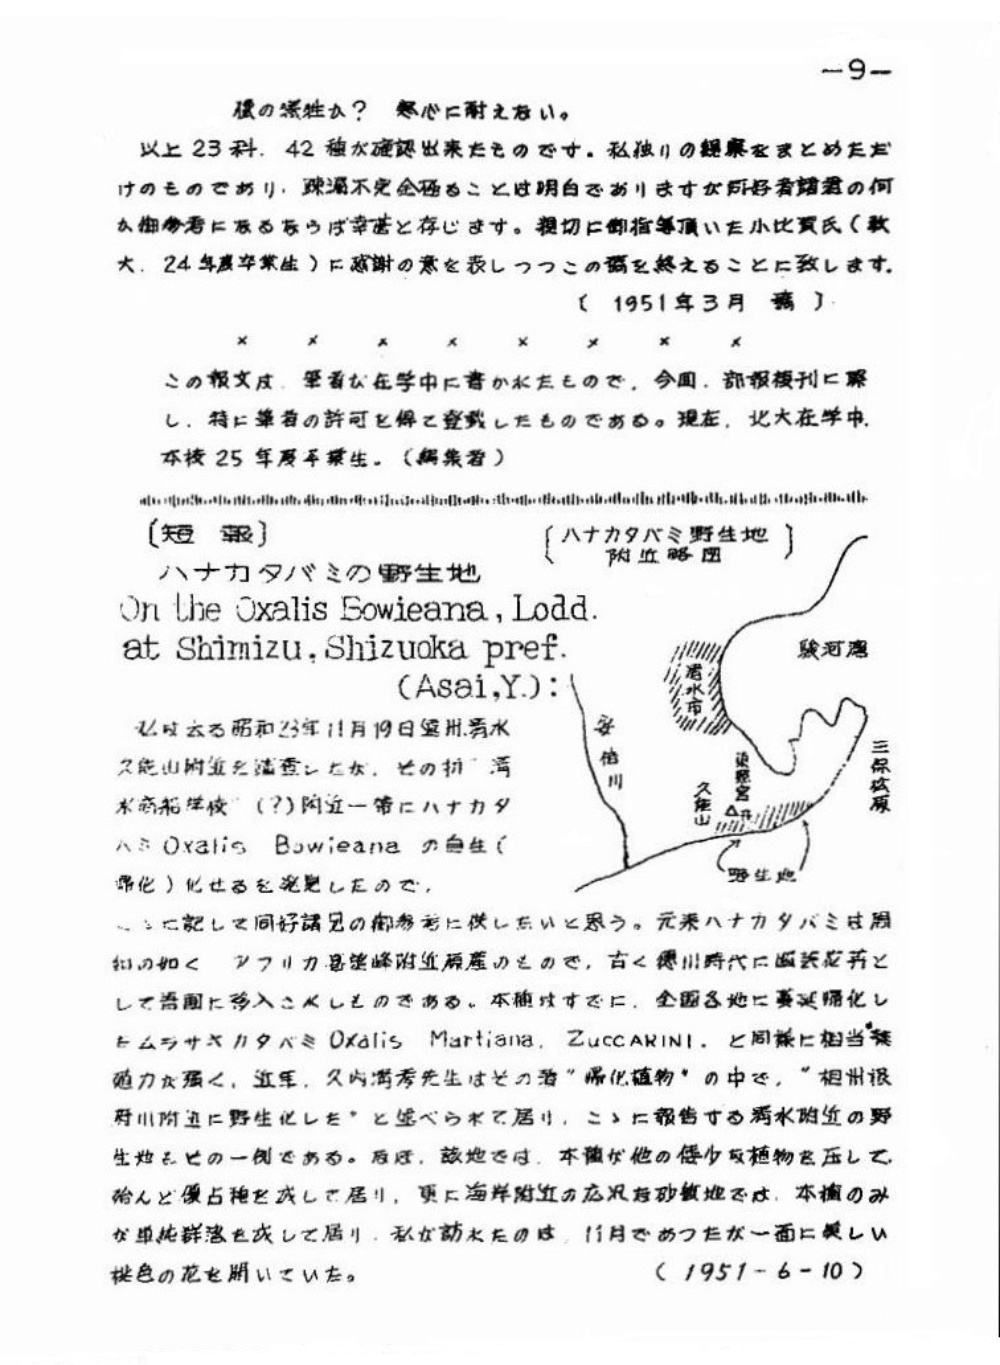 —9—
種の犠牲か？ 寒心に耐えない。
以上23科．42種が確認出来たものです。私独りの観察をまとめただ
けのものであり，疎漏不完全極ることは明白でありますが同好者諸君の何
か御参考になるならば幸甚と存じます。親切に御指導頂いた小比賀氏（教
大．24年度卒業生）に感謝の意を表しつつこの稿を終えることに致します．
〔 1951年3月 稿 〕
× × × × × × × ×
この報文は．筆者が在学中に書かれたもので，今回．部報復刊に際
し．特に筆者の許可を得て登載したものである。現在，北大在学中．
本校25年度卒業生。（編集者）
〔短 報〕
ハナカタバミの野生地
On the Oxalis Bowieana, Lodd.
at Shimizu, Shizuoka pref.
(Asai, Y.):
〔ハナカタバミ野生地
附近略図〕
駿河湾
清水市
安倍川
久能山
東照宮
三保松原
野生地
私は去る昭和23年11月19日 清水
久能山附近を踏査したが，その折"清
水商船学校"（？）附近一帯にハナカタ
バミ Oxalis Bowieana の自生（
帰化）化せるを発見したので，
こゝに記して同好諸兄の御参考に供したいと思う。元来ハナカタバミは周
知の如く アフリカ喜望峰附近原産のもので，古く徳川時代に園芸花卉と
して吾国に移入されしものである。本種はすでに．全国各地に蔓延帰化し
たムラサキカタバミ Oxalis Martiana, ZUCCARINI. と同様に相当繁
殖力が強く，近年，久内清孝先生はその著"帰化植物"の中で，"相州根
府川附近に野生化した"と述べられて居り，こゝに報告する清水附近の野
生地もその一例である。なほ，該地では．本種が他の矮少な植物を圧して，
殆んど優占種を成して居り，更に海岸附近の広汎な砂礫地では，本種のみ
が単純群落を成して居り．私が訪れたのは．11月であつたが一面に美しい
桃色の花を開いていた。 （1951-6-10）